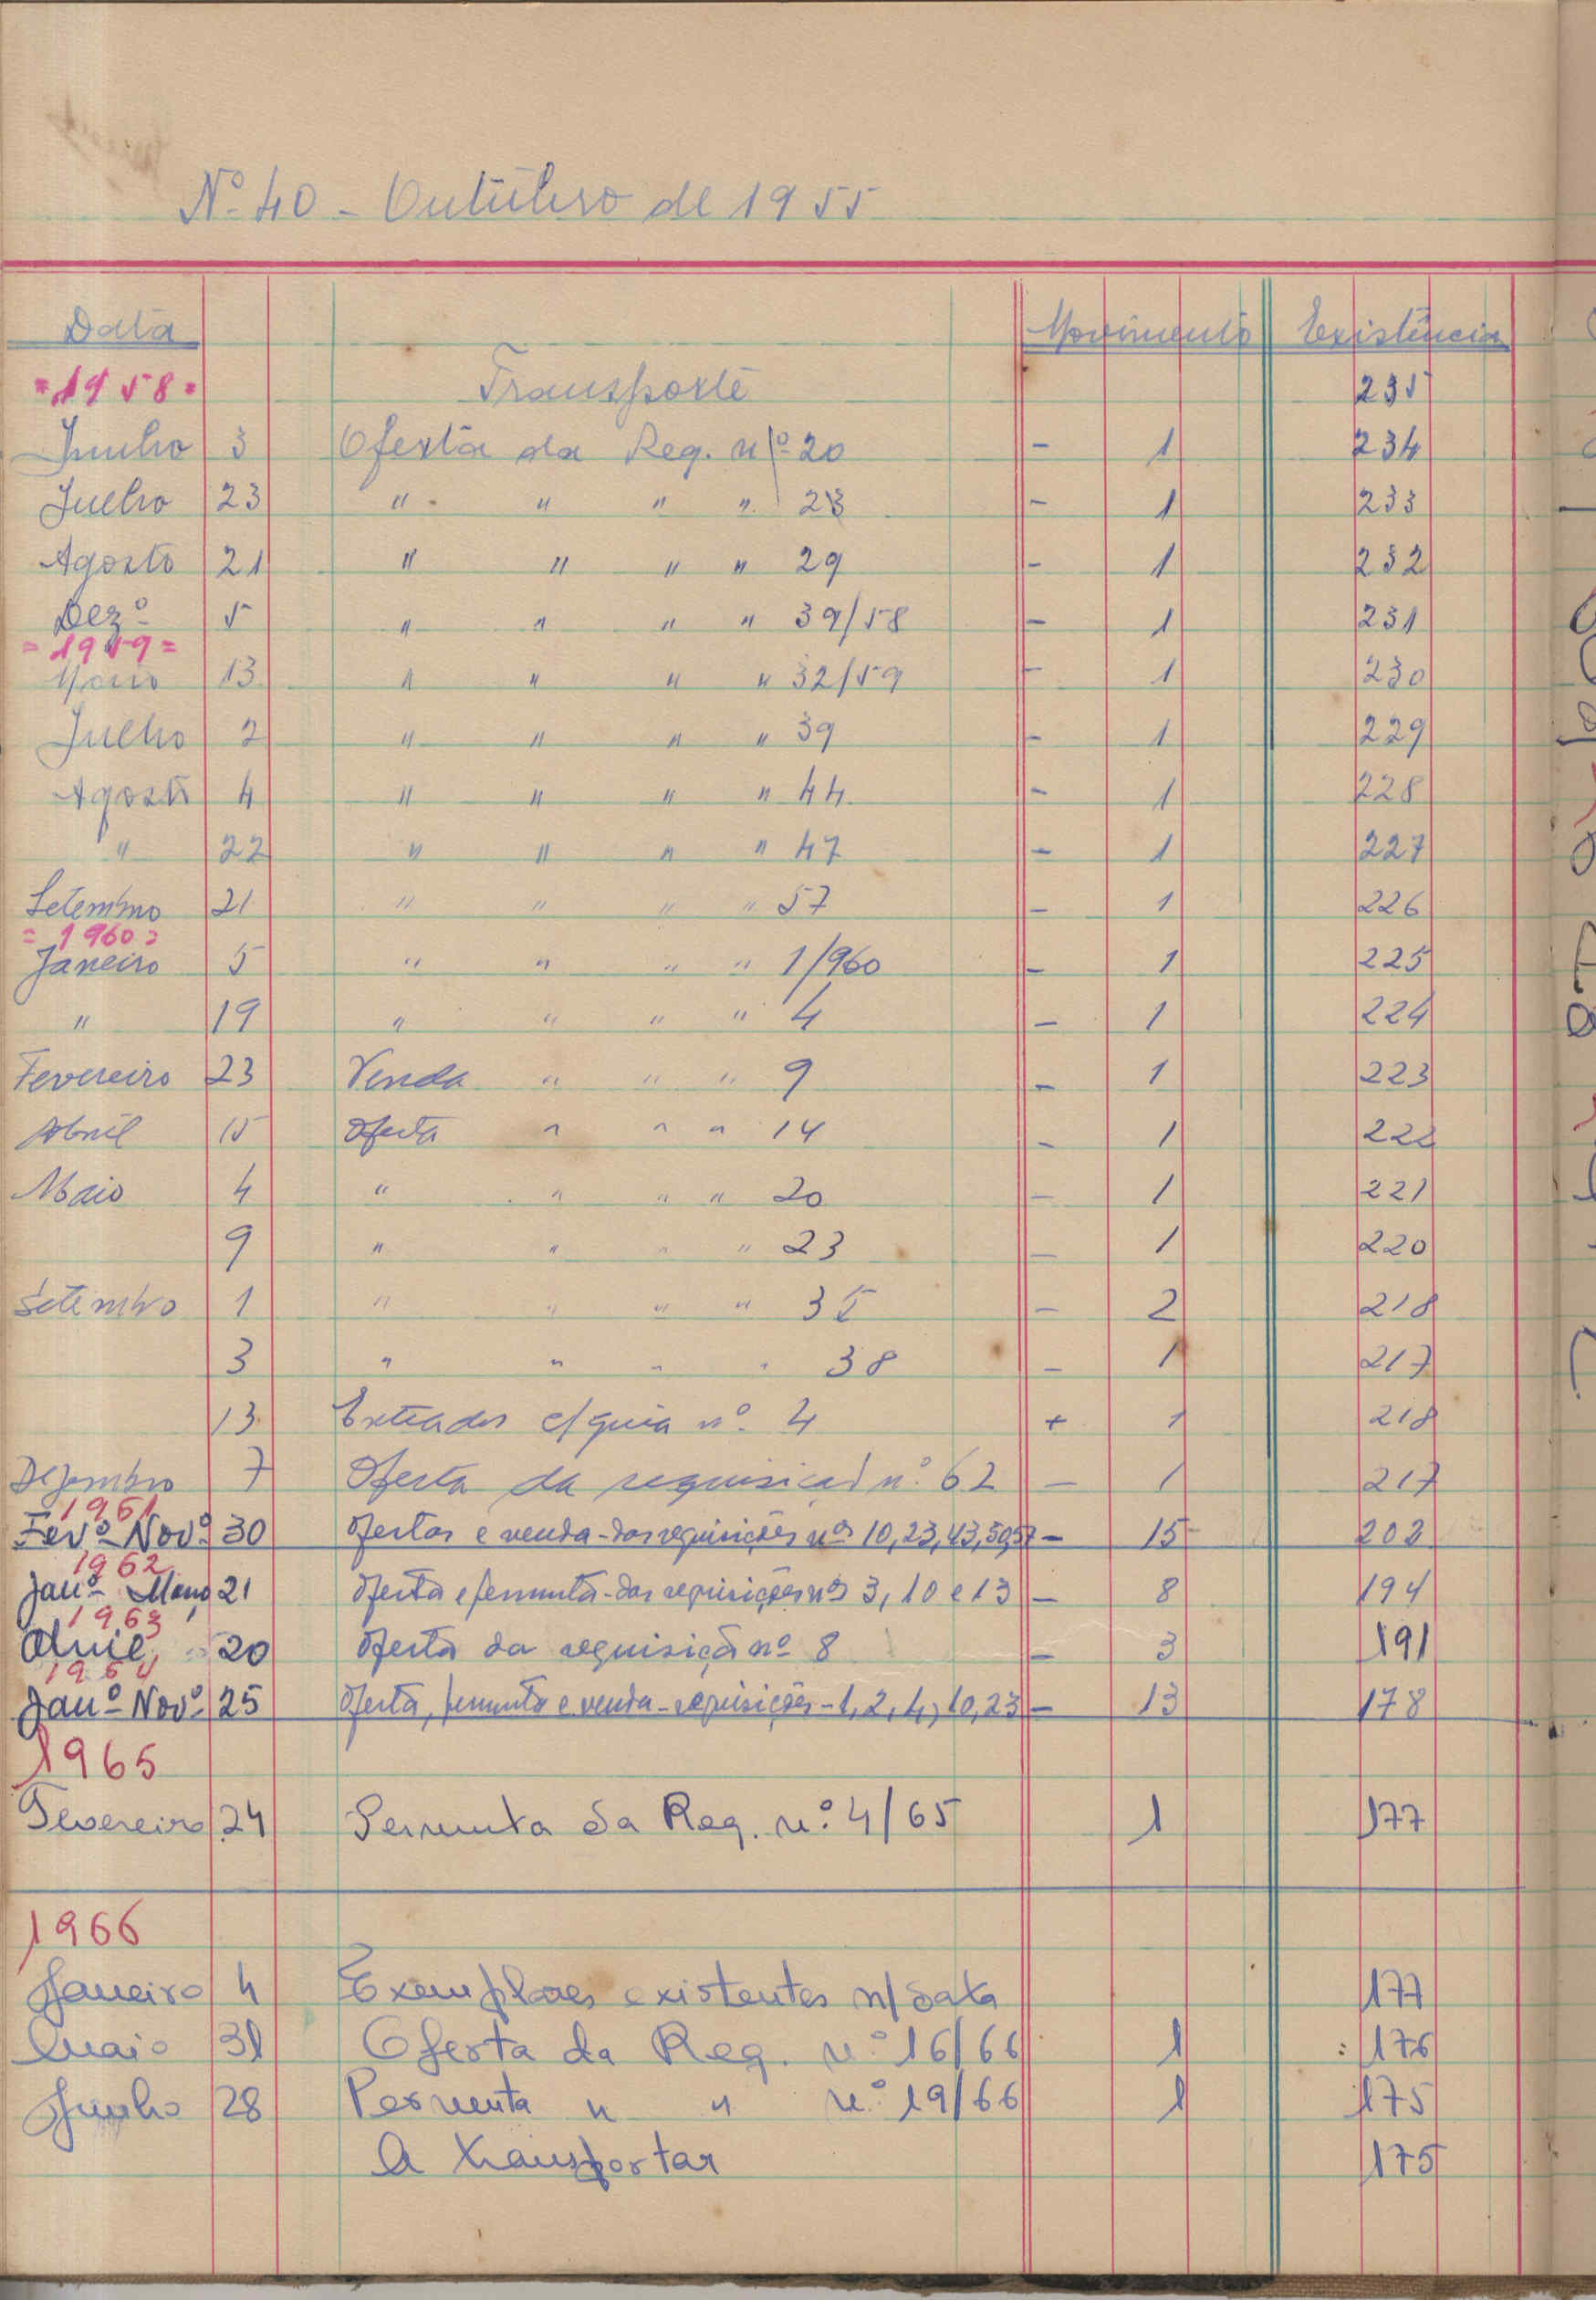 Nº 40 - Outubro de 1955
Data Movimento Existência
=1958= Transporte 235
Junho 3 Oferta da Req. nº 20 - 1 234
Julho 23 " " " " 23 - 1 233
Agosto 21 " " " " 29 - 1 232
Dezº 5 " " " " 39/58 - 1 231
=1959=
Maio 13 " " " " 32/59 - 1 230
Julho 2 " " " " 39 - 1 229
Agosto 4 " " " " 44 - 1 228
" 22 " " " " 47 - 1 227
Setembro 21 " " " " 57 - 1 226
=1960=
Janeiro 5 " " " " 1/960 - 1 225
" 19 " " " " 4 - 1 224
Fevereiro 23 Venda " " " 9 - 1 223
Abril 15 Oferta " " " 14 - 1 222
Maio 4 " " " " 20 - 1 221
9 " " " " 23 - 1 220
Setembro 1 " " " " 35 - 2 218
3 " " " " 38 - 1 217
13 Entrados c/guia nº 4 + 1 218
Dezembro 7 Oferta da requisição nº 62 - 1 217
1961
Fevº-Novº 30 Ofertas e venda-das requisições nºs 10,23,43,50,57 - 15 202
1962
Janº 21 Oferta e permuta-das requisições nºs 3,10 e 13 - 8 194
1963
Abril 20 Oferta da requisição nº 8 - 3 191
1964
Janº-Novº 25 Oferta, permuta e venda-requisições-1,2,4,10,23 - 13 178
1965
Fevereiro 24 Permuta da Req. nº 4/65 1 177
1966
Janeiro 4 Exemplares existentes n/data 177
Maio 31 Oferta da Req. nº 16/66 1 176
Junho 28 Permuta " " nº 19/66 1 175
A transportar 175